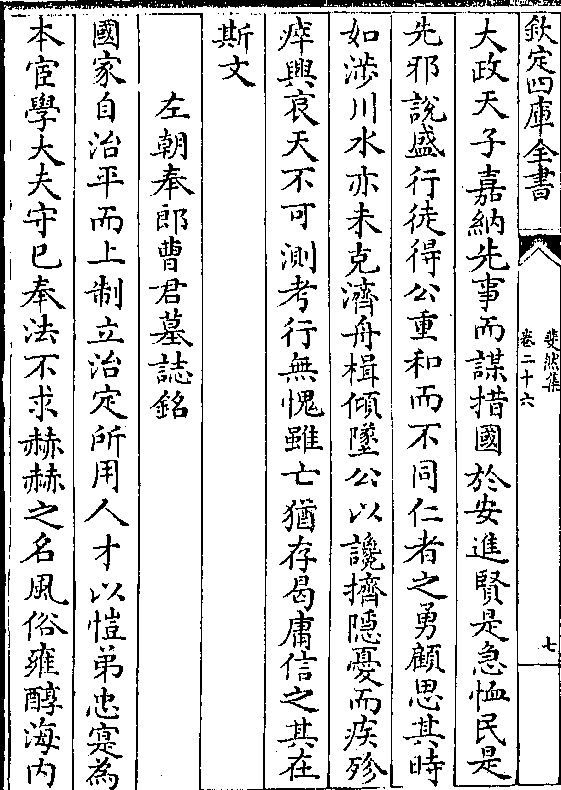 欽定四庫全書
斐然集
卷二十六
七
大政天子嘉納先事而謀措國於安進賢是急恤民是
先邪說盛行徒得公重和而不同仁者之勇顧思其時
如渉川水亦未克濟舟楫傾墜公以讒擠隠憂而疾殄
瘁興哀天不可測考行無愧雖亡猶存曷庸信之其在
斯文
左朝奉郎曹君墓誌銘
國家自治平而上制立治定所用人才以愷弟忠寔為
本宦學大夫守已奉法不求赫赫之名風俗雍醇海内